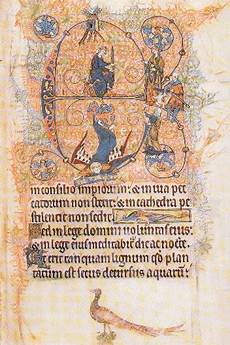 in consilio impiorum: & in uia pec
catorum non stetit: & in cathedra pe
stilencie non sedit.
Sed in lege domini uoluntas eius:
& in lege eius meditabitur die ac nocte.
Et erit tanquam lignum quod plan
tatum est secus decursus aquarum: